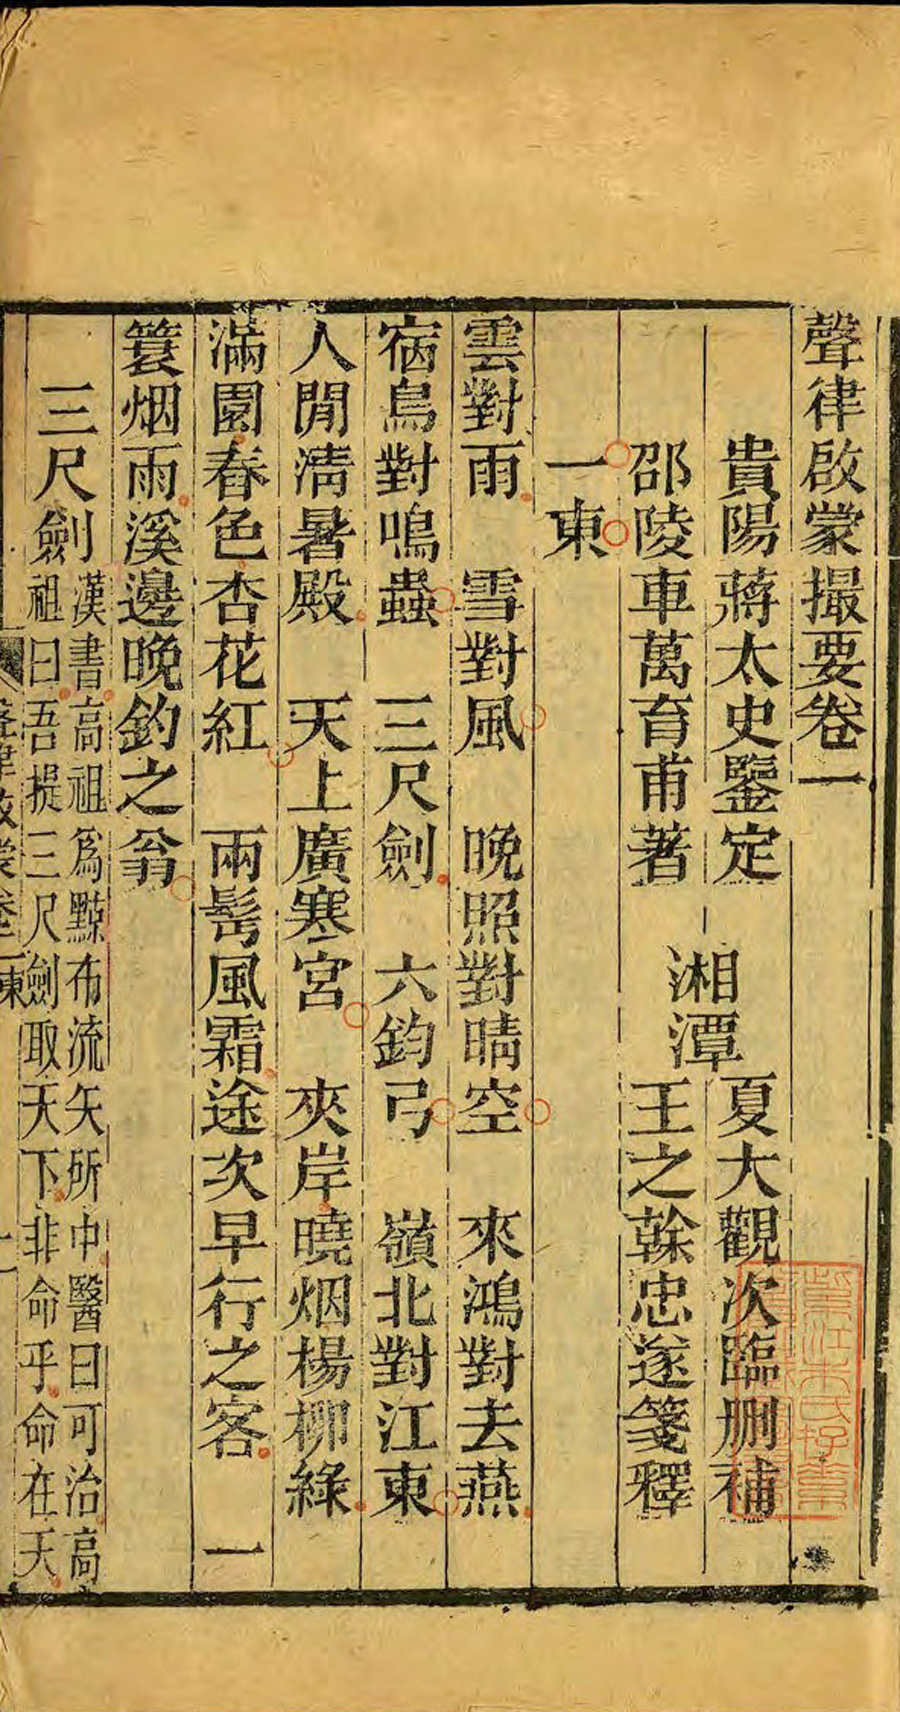 聲律啟蒙撮要卷一
貴陽蔣太史鑒定
邵陵車萬育甫著
湘潭
夏大觀次臨刪補
王之榦忠遂箋釋
一東
雲對雨 雪對風 晚照對晴空 來鴻對去燕
宿鳥對鳴蟲 三尺劍 六鈞弓 嶺北對江東
人閒清暑殿 天上廣寒宮 夾岸曉烟楊柳綠
滿園春色杏花紅 兩髩風霜途次早行之客 一
簑烟雨溪邊晚釣之翁
三尺劍
漢書高祖爲黥布流矢所中醫曰可治高
祖曰吾提三尺劍取天下非命乎命在天
聲律啟蒙卷一 一東 一